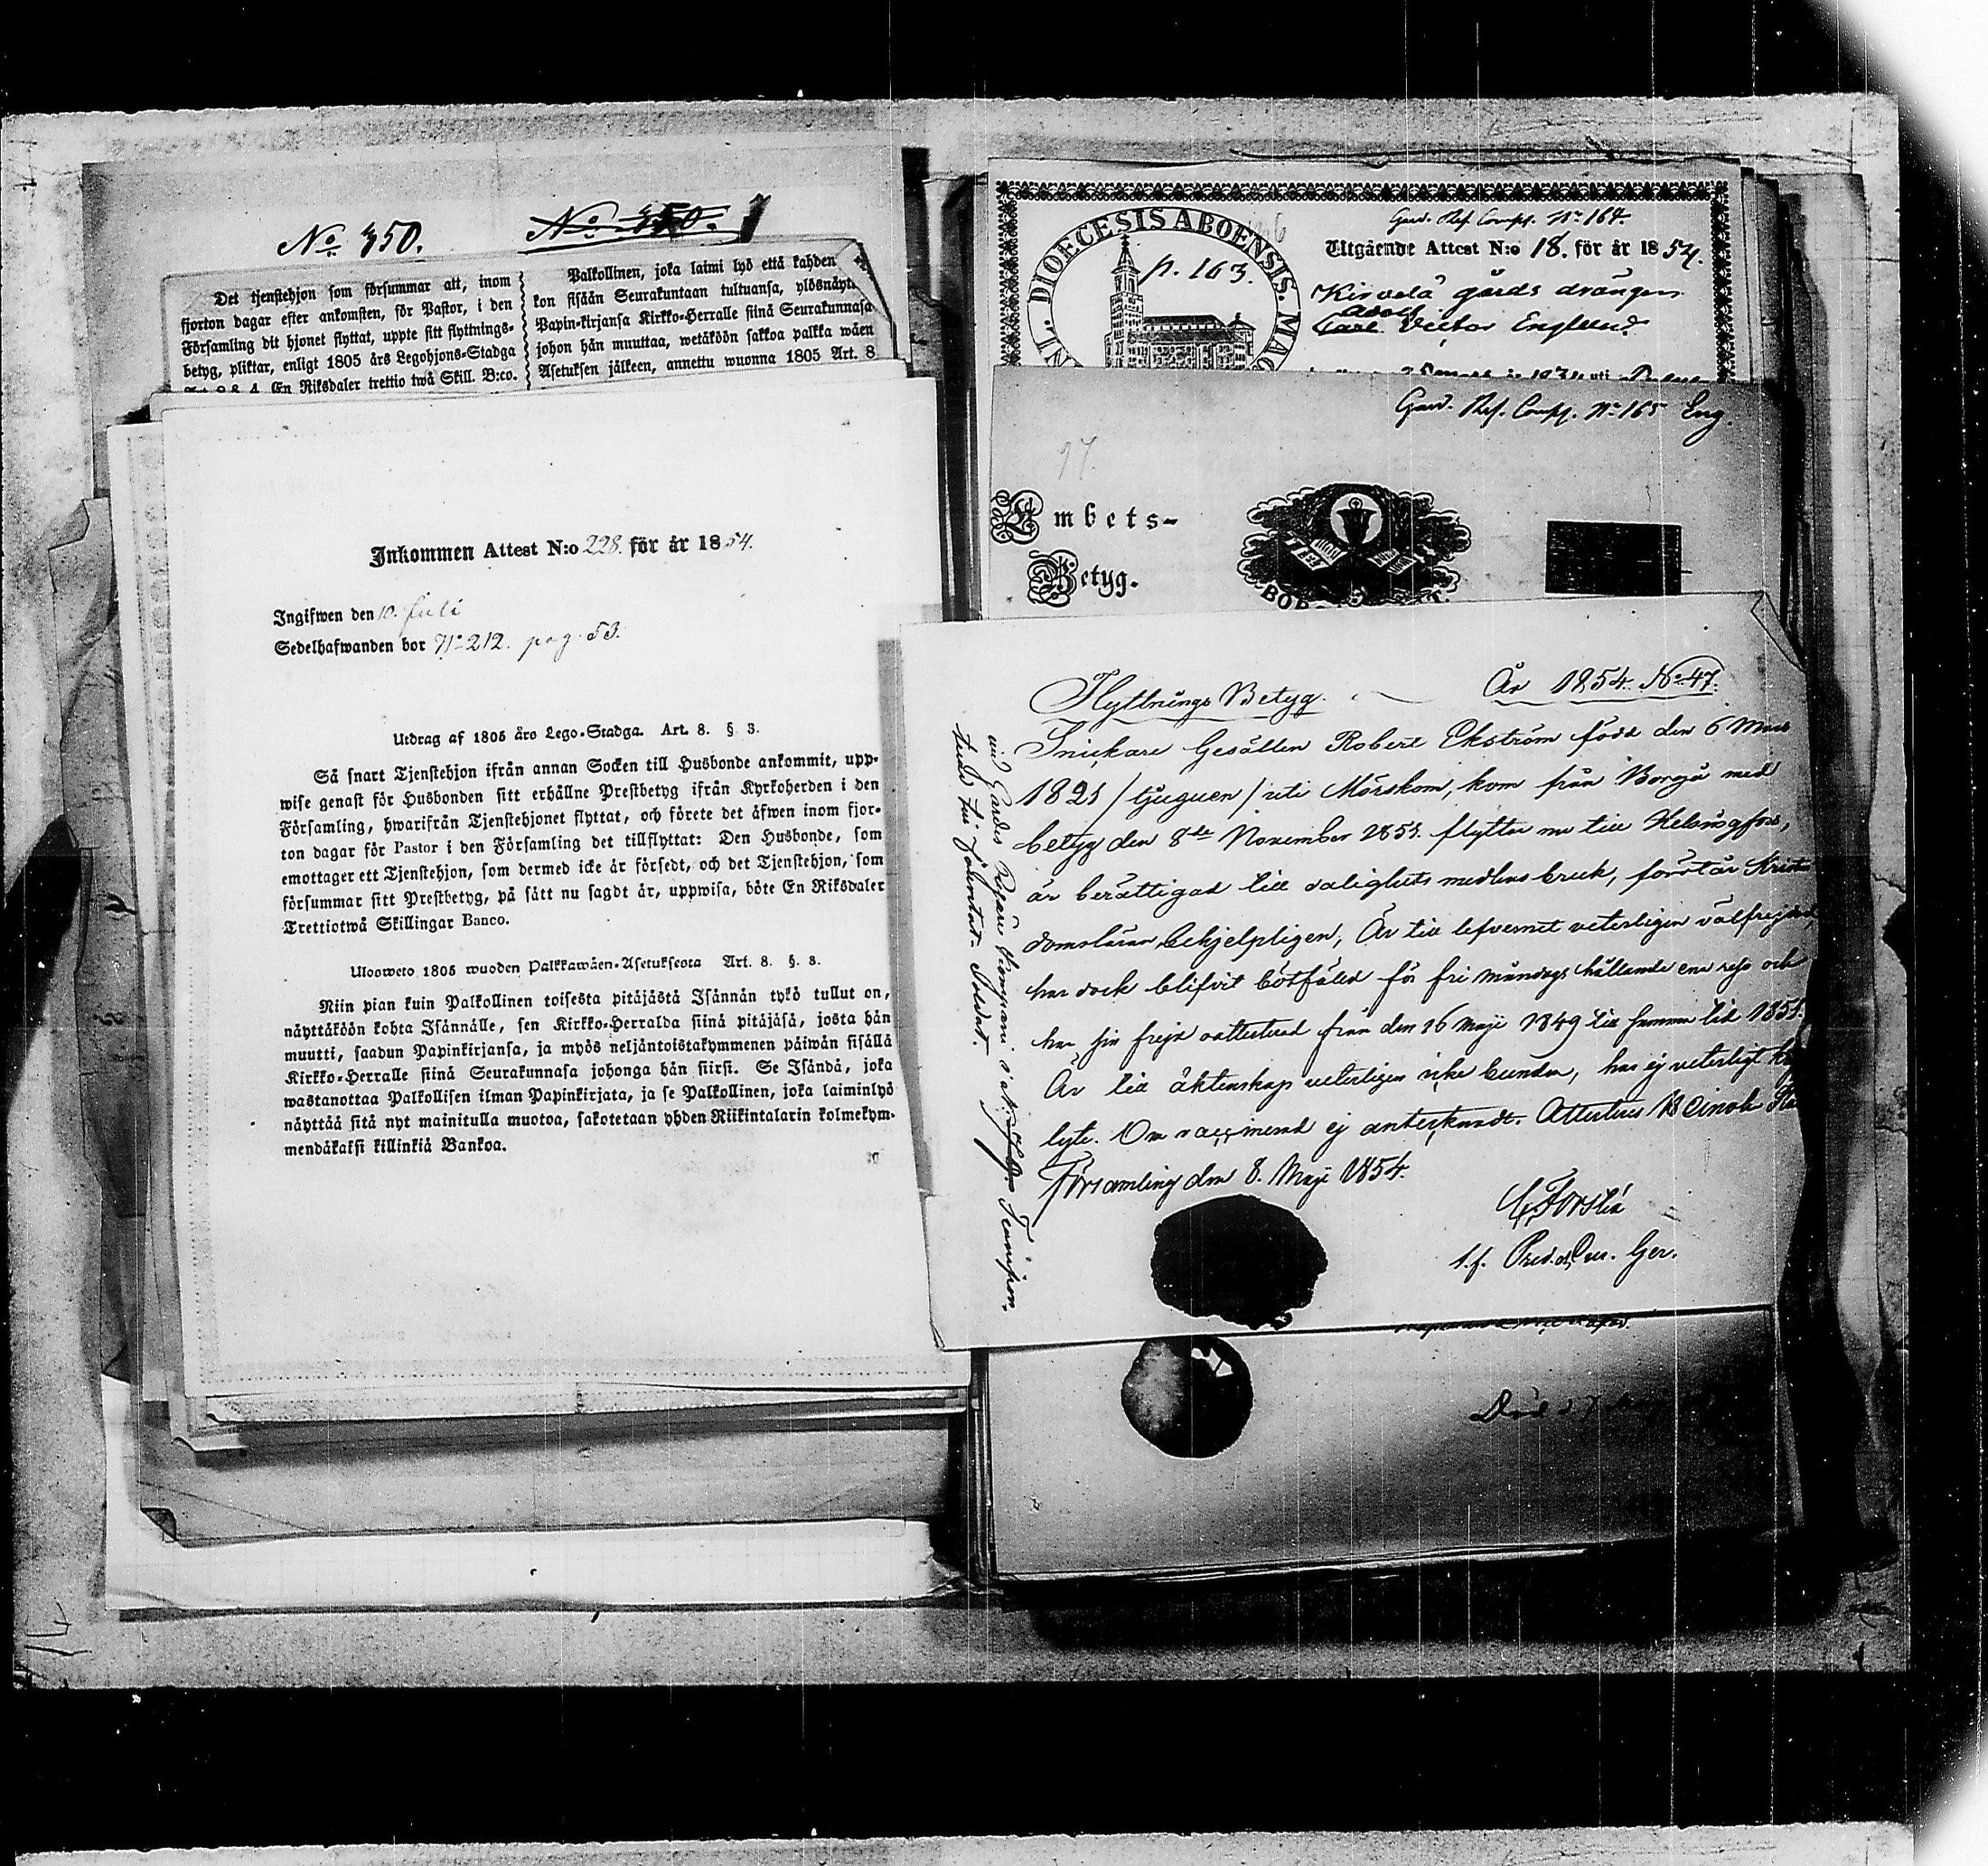 No. 350.
No. 350.
Det tjenstehjon som försummar att, inom
fjorton dagar efter ankomsten, för Pastor, i den
Församling dit hjonet flyttat, uppte sitt flyttnings-
betyg, pliktar, enligt 1805 års Legohjons-Stadga
En Riksdaler trettio twå Skill. B:co.
Palkollinen, joka laimi lyö että kahden
kon sisään Seurakuntaan tultuansa,
Papin-kirjansa Kirkko-Herralle siinä Seurakunnasa
johon hän muuttaa, wetäköön sakkoa palkka wäen
Asetuksen jälkeen, annettu wuonna 1805 Art. 8
Inkommen Attest N:o 228. för år 1854.
Ingifwen den 10. Juli
Sedelhafwanden bor No 212. pag. 53.
Utdrag af 1805 års Lego-Stadga. Art. 8. § 3.
Så snart Tjenstehjon ifrån annan Socken till Husbonde ankommit, upp-
wise genast för Husbonden sitt erhållne Prestbetyg ifrån Kyrkoherden i den
Församling, hwarifrån Tjenstehjonet flyttat, och förete det äfwen inom fjor-
ton dagar för Pastor i den Församling det tillflyttat: Den Husbonde, som
emottager ett Tjenstehjon, som dermed icke är försedt, och det Tjenstehjon, som
försummar sitt Prestbetyg, på sätt nu sagdt är, uppwisa, böte En Riksdaler
Trettiotwå Skillingar Banco.
Ulosweto 1805 wuoden Palkkawäen-Asetuksesta Art. 8. §. 3.
Niin pian kuin Palkollinen toisesta pitäjästä Isännän tykö tullut on,
näyttäköön kohta Isännälle, sen Kirkko-Herralda siinä pitäjäsä, josta hän
muutti, saadun Papinkirjansa, ja myös neljäntoistakymmenen päiwän sisällä
Kirkko-Herralle siinä Seurakunnasa johonga hän siirsi. Se Isändä, joka
wastanottaa Palkollisen ilman Papinkirjata, ja se Palkollinen, joka laiminlyö
näyttää sitä nyt mainitulla muotoa, sakotetaan yhden Riikintalarin kolmekym-
mendäkaksi killinkiä Bankoa.
DIOECESIS ABOENSIS.
p. 163.
Gard. Ref. Comp. No 164.
Utgående Attest N:o 18. för år 1854.
Kirvelä gårds drängen
Adolf
Carl Victor Englund
Gard. Ref. Comp. No 165 Eng.
97.
Embets-
Betyg.
Flyttnings Betyg. År 1854. No 47.
Snickare Gesällen Robert Ekström född den 6 Mars
1821 /tjuguen/ uti Mörskom, kom från Borgå med
betyg den 8de November 1851. flyttar nu till Helsingfors,
är berättigad till salighets medlens bruk, förstår Kristen
domsläran behjelpligen, Är till lefvernet veterligen välfrejdad,
har dock blifvit bötfälld för fri måndags hållande en resa och
har sin frejd oattesterad från den 16 Maji 1849 till samma tid 1851.
Är till äktenskap veterligen icke bunden, har ej veterligt
lyte. Om vaccinerad ej antecknadt. Attesteras Heinola
Församling den 8. Maji 1854.
C. Forstén
Död 27